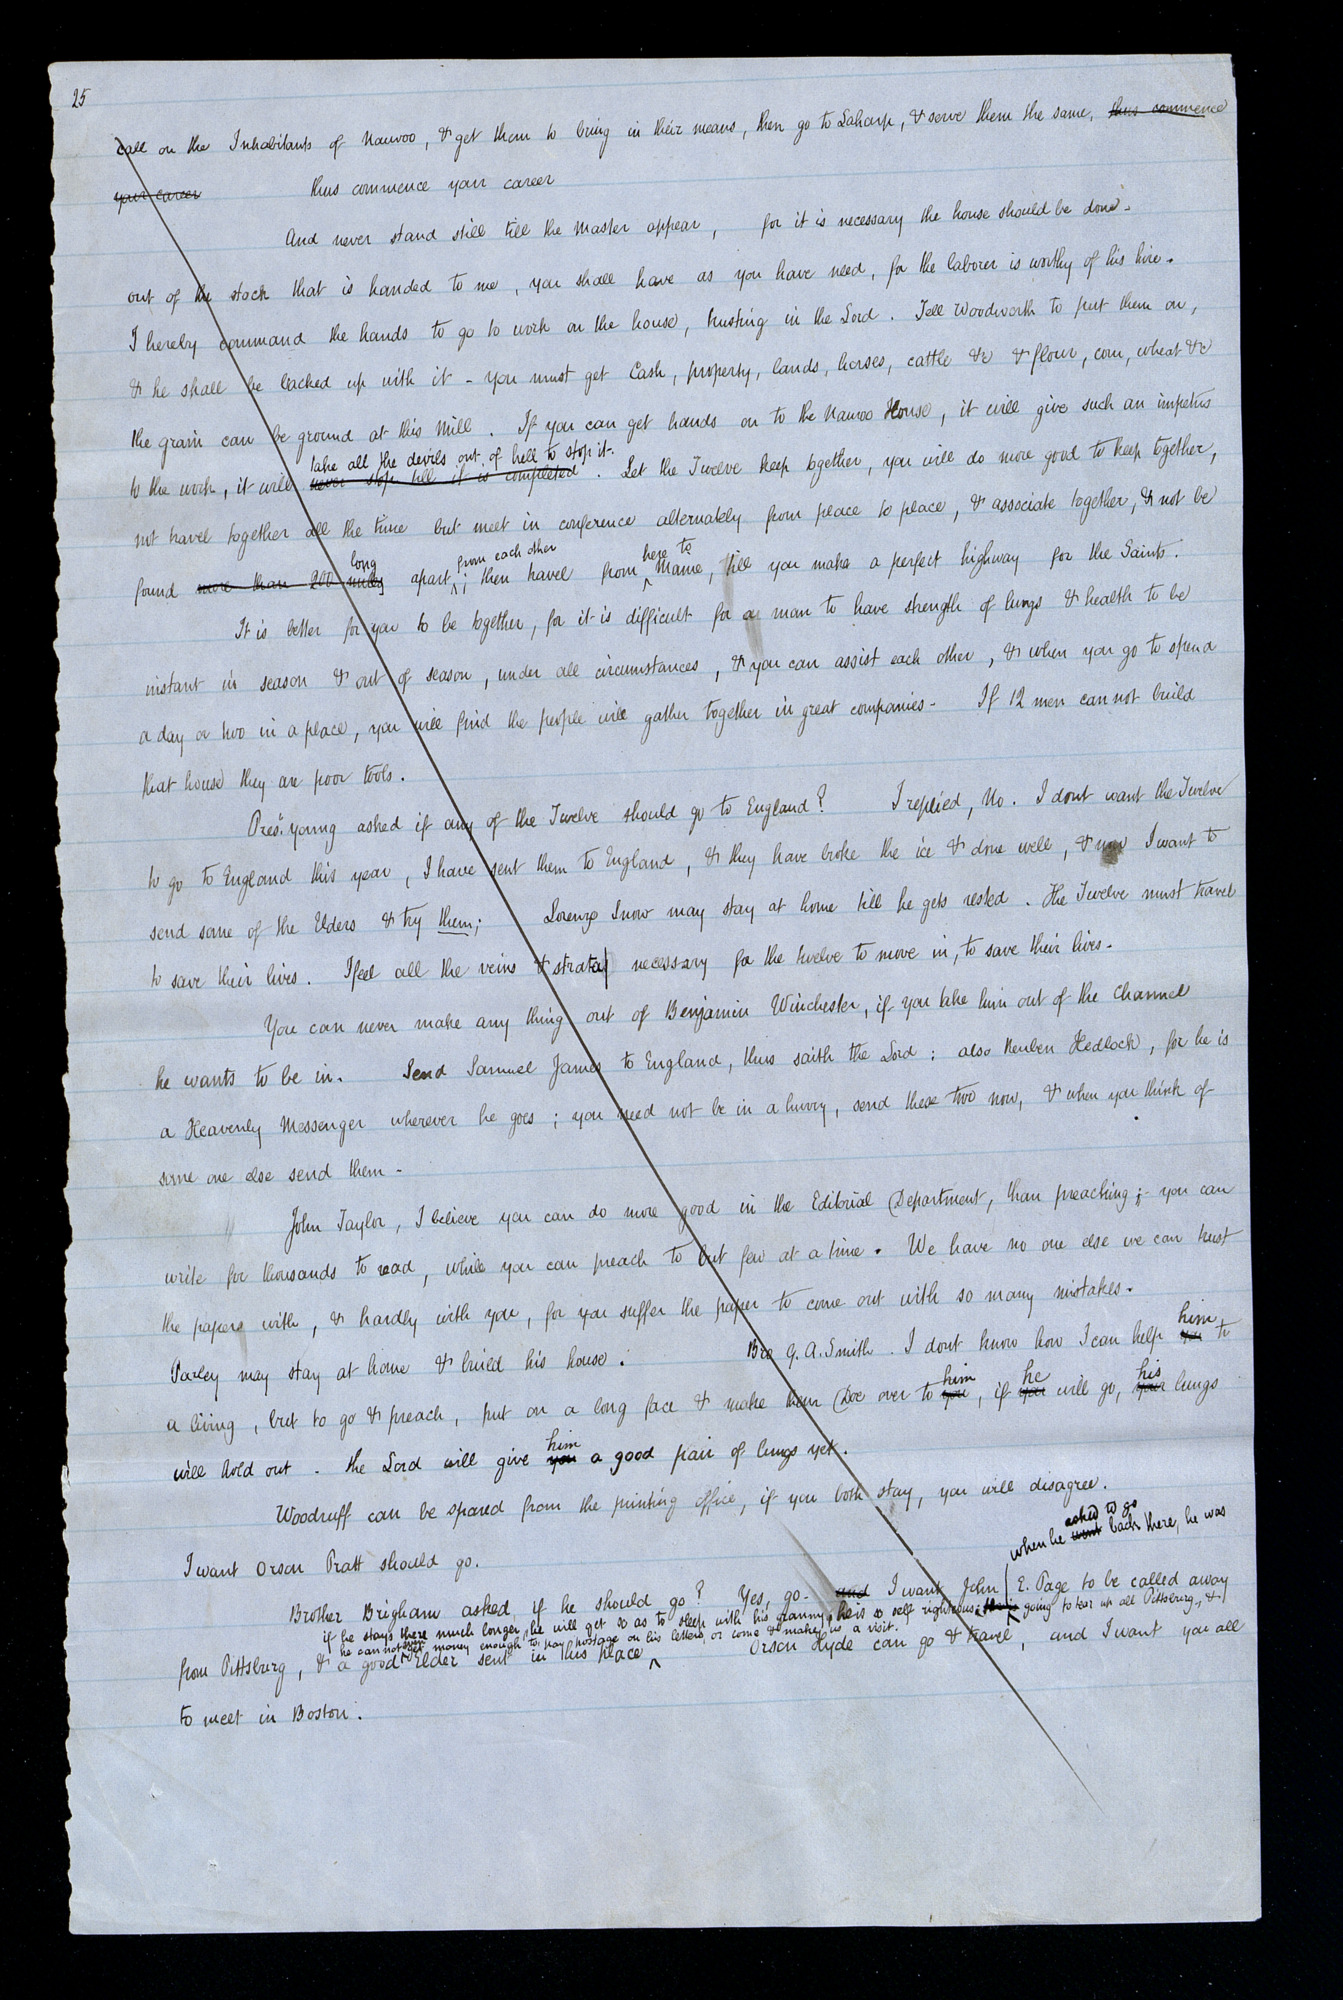 25
call on the Inhabitants of Nauvoo, & get them to bring in their means, then go to Laharp, & serve them the same, thus commence
your career thus commence your career
And never stand still till the Master appear, for it is necessary the house should be done.
out of the stock that is handed to me, you shall have as you have need, for the laborer is worthy of his hire.
I hereby command the hands to go to work on the house, trusting in the Lord. Tell Woodworth to put them on,
& he shall be backed up with it - you must get Cash, property, lands, horses, cattle &c & flour, corn, wheat &c
the grain can be ground at this Mill. If you can get hands on to the Nauvoo House, it will give such an impetus
take all the devils out of hell to stop it.
to the work, it will never stop till it is completed. Let the Twelve keep together, you will do more good to keep together,
not travel together all the time but meet in conference alternately from place to place, & associate together, & not be
long from each other here to
found more than 200 miles apart; then travel from Maine, till you make a perfect highway for the Saints.
It is better for you to be together, for it is difficult for a man to have strength of lungs & health to be
instant in season & out of season, under all circumstances, & you can assist each other, & when you go to spend
a day or two in a place, you will find the people will gather together in great companies - If 12 men can not build
that house they are poor tools.
Prest. Young asked if any of the Twelve should go to England? I replied, No. I dont want the Twelve
to go to England this year, I have sent them to England, & they have broke the ice & done well, & now I want to
send some of the Elders & try them; Lorenzo Snow may stay at home till he gets rested. The Twelve must travel
to save their lives. I feel all the veins & strata necessary for the twelve to move in, to save their lives.
You can never make any thing out of Benjamin Winchester, if you take him out of the channel
he wants to be in. Send Samuel James to England, thus saith the Lord; also Reuben Hedlock, for he is
a Heavenly Messenger wherever he goes; you need not be in a hurry, send these two now, & when you think of
some one else send them -
John Taylor, I believe you can do more good in the Editorial Department, than preaching; you can
write for thousands to read, while you can preach to but few at a time. We have no one else we can trust
the papers with, & hardly with you, for you suffer the paper to come out with so many mistakes.
him
Parley may stay at home & build his house. Bro G. A. Smith. I dont know how I can help you to
him he his
a living, but to go & preach, put on a long face & make them Doe over to you, if you will go, your lungs
him
will hold out - the Lord will give you a good pair of lungs yet.
Woodruff can be spared from the printing office, if you both stay, you will disagree.
asked to go
I want Orson Pratt should go. when he went back there, he was
Brother Brigham asked if he should go? Yes, go - and I want John E. Page to be called away
if he stays there much longer, he will get so as to sleep with his granny, he is so self righteous; going to tear up all Pittsburg, &
he cannot even get money enough to pay postage on his letters, or come & make us a visit.
from Pittsburg, & a good Elder sent in his place Orson Hyde can go & travel, and I want you all
to meet in Boston.